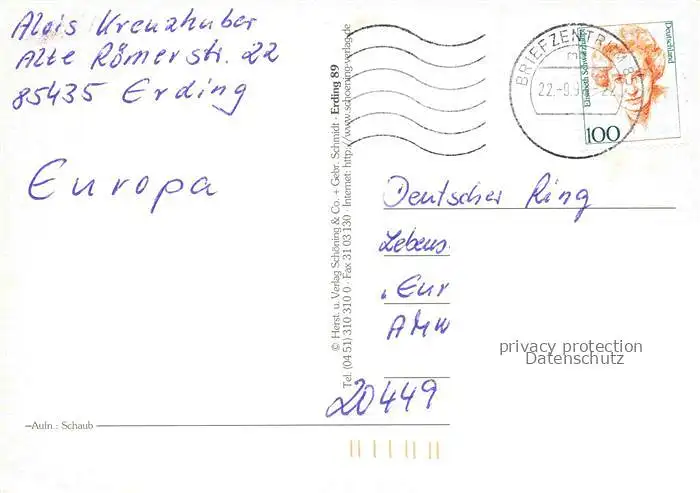 Alois Kreuzhuber
Alte Römerstr. 22
85435 Erding
Europa
-Aufn.: Schaub
© Herst. u. Verlag Schöning & Co. + Gebr. Schmidt · Erding 89
Tel. (04 51) 310 310 0 · Fax 31 03 130 · Internet: http://www.schoening-verlag.de
BRIEFZENTRUM 85
22.-9.9
Deutschland
Elisabeth Schwarzhaupt
100
Deutscher Ring
Lebens
"Eur
AMW
20449
privacy protection
Datenschutz